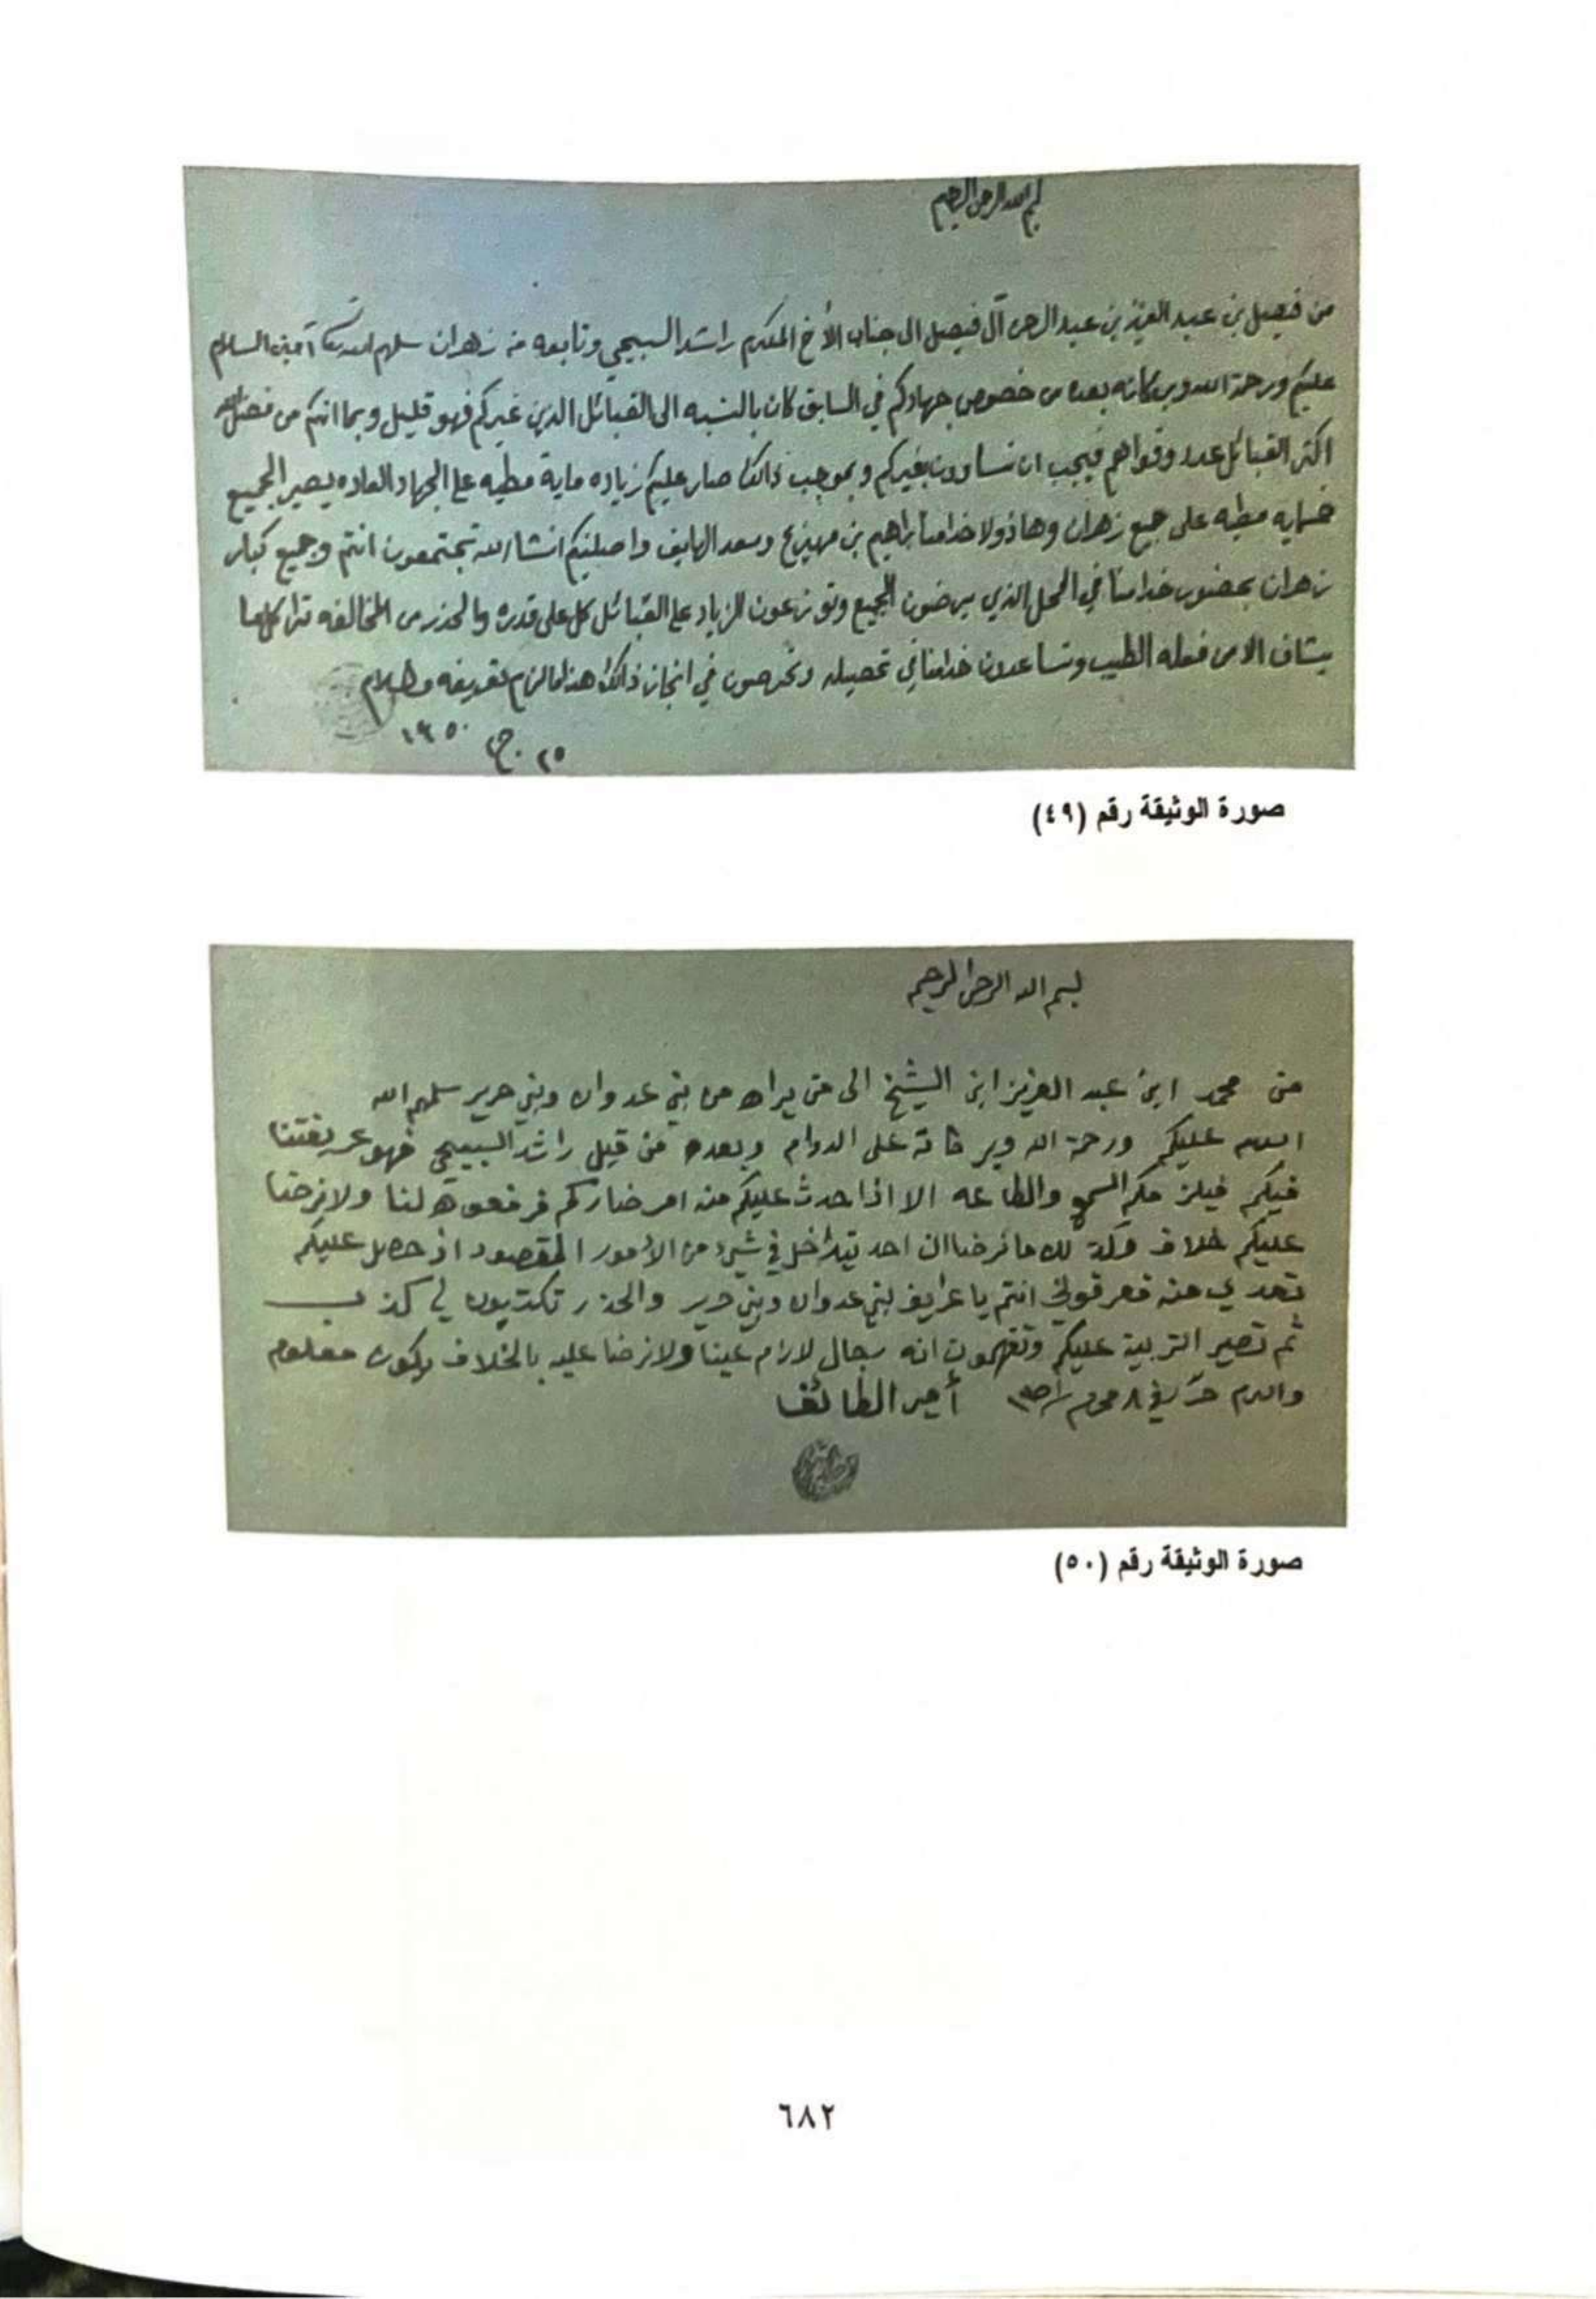 بسم الله الرحمن الرحيم
من فيصل بن عبد العزيز بن عبد الرحمن آل فيصل الى جناب الأخ المكرم راشد السبيحي وتابعه من زهران سلمهم الله تعالى آمين السلام
عليكم ورحمة الله وبركاته بعده من خصوص جهادكم في السابق كان بالنسبه الى القبائل الذين غيركم فهو قليل وبما انكم من فضل الله
اكثر القبائل عدد وقواهم فيجب ان تساوون بغيركم وبموجب ذالك صار عليكم زياده ماية مطيه على الجهاد العاده يصير الجميع
خمسايه مطيه على جميع زهران وهاذولا خدامنا ابراهيم بن مهيزع وسعد الهايف واصلينكم انشاء الله تجتمعون انتم وجميع كبار
زهران بحضور خدامنا في المحل الذي يرضون الجميع وتوزعون الزياد على القبائل كل على قدره والحذر من المخالفه ترا كلها
الامر فعله الطيب وتساعدون خدامنا في تحصيله وتحرصون في انجاز ذالك هذا ما لزم تعريفه والسلام
٢٥ ج ١٣٥٠
صورة الوثيقة رقم (٤٩)
بسم الله الرحمن الرحيم
من محمد ابن عبد العزيز ابن الشيخ الى من يراه من بني عدوان وبني حرير سلمهم الله
السلام عليكم ورحمة الله وبركاته على الدوام وبعده من قبل راشد السبيحي فهو عريفتنا
فيكم فيلزمكم السمع والطاعه الا اذا حدث عليكم منه امر ضاركم فرفعوه لنا ولا نرضا
عليكم خلاف ما نرضا ان احد يتداخل في شيء من الأمور المقصود اذ حصل عليكم
تعدي منه فعرفوني انتم يا عرايف بني عدوان وبني حرير والحذر تكتبون لي كذب
ثم تصير التربية عليكم وتفهمون انه رجال لازم علينا ولا نرضا عليه بالخلاف يكون معلوم
والسلام في ٨ محرم أمير الطائف
صورة الوثيقة رقم (٥٠)
٦٨٢